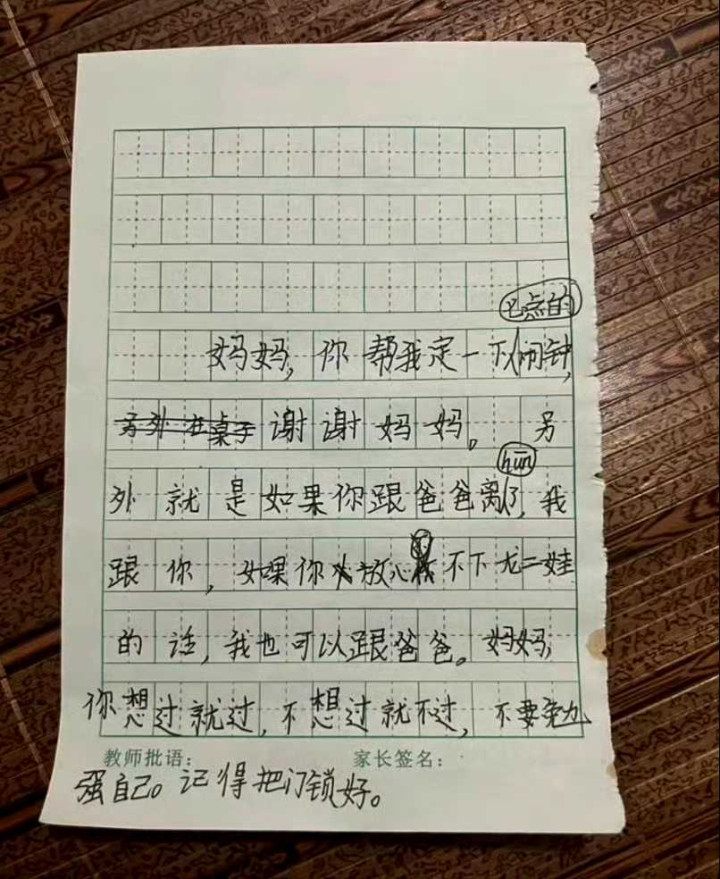 7点的
妈妈，你帮我定一下闹钟，
另外 在桌子 谢谢妈妈。另
hūn
外就是如果你跟爸爸离了，我
跟你，如果你放心不下龙二娃
的话，我也可以跟爸爸。妈妈，
你想过就过，不想过就不过，不要勉
教师批语： 家长签名：
强自己。记得把门锁好。